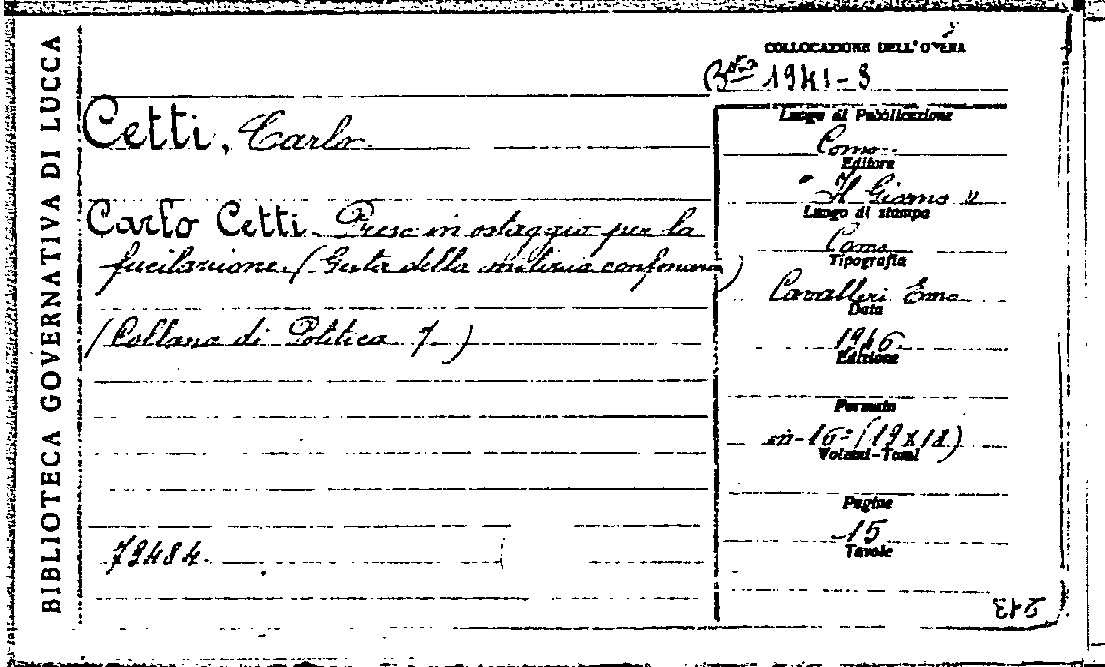 BIBLIOTECA GOVERNATIVA DI LUCCA
COLLOCAZIONE DELL'OPERA
1941-3
Cetti, Carlo
Carlo Cetti. Preso in ostaggio per la
fucilazione. (Gesta della milizia confinaria)
(Collana di Politica 7.)
79484.
Luogo di Pubblicazione
Como
Editore
"Il Giorno"
Luogo di stampa
Como
Tipografia
Cavalleri Emo
Data
1946
Edizione
Formato
in-16° (19x12)
Volumi-Tomi
Pagine
15
Tavole
213